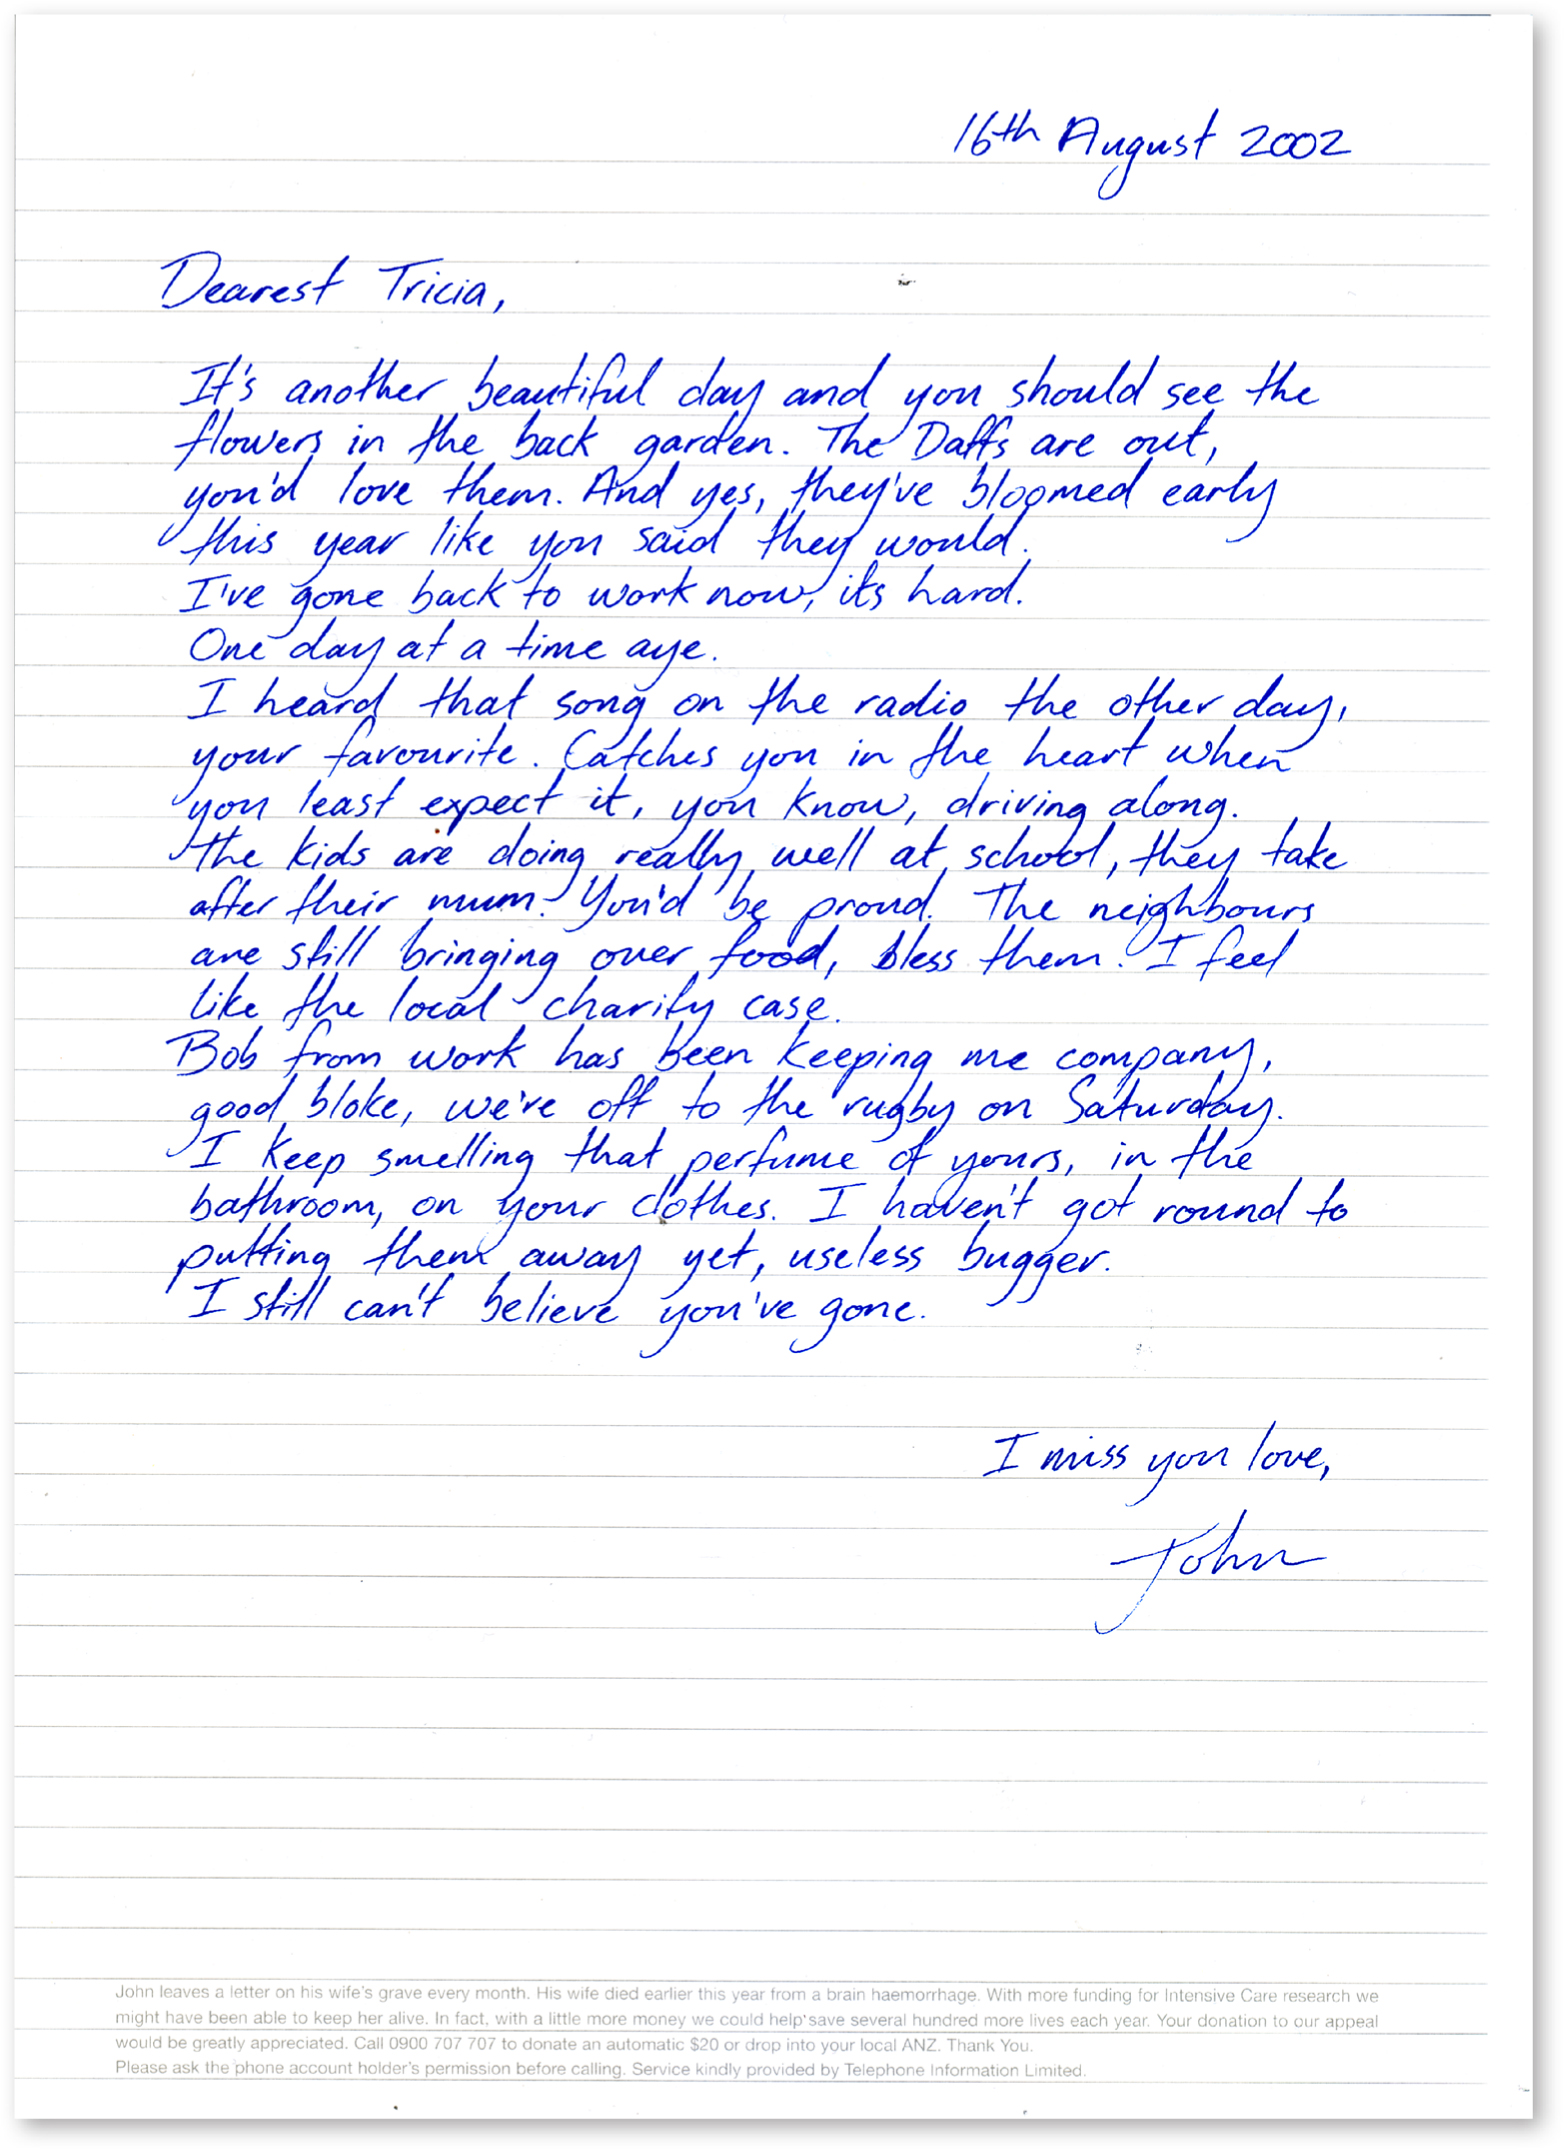 16th August 2002
Dearest Tricia,
It's another beautiful day and you should see the
flowers in the back garden. The Daffs are out,
you'd love them. And yes, they've bloomed early
this year like you said they would.
I've gone back to work now, its hard.
One day at a time aye.
I heard that song on the radio the other day,
your favourite. Catches you in the heart when
you least expect it, you know, driving along.
The kids are doing really well at school, they take
after their mum. You'd be proud. The neighbours
are still bringing over food, bless them. I feel
like the local charity case.
Bob from work has been keeping me company,
good bloke, we're off to the rugby on Saturday.
I keep smelling that perfume of yours, in the
bathroom, on your clothes. I haven't got round to
putting them away yet, useless bugger.
I still can't believe you've gone.
I miss you love,
John
John leaves a letter on his wife's grave every month. His wife died earlier this year from a brain haemorrhage. With more funding for Intensive Care research we
might have been able to keep her alive. In fact, with a little more money we could help save several hundred more lives each year. Your donation to our appeal
would be greatly appreciated. Call 0900 707 707 to donate an automatic $20 or drop into your local ANZ. Thank You.
Please ask the phone account holder's permission before calling. Service kindly provided by Telephone Information Limited.